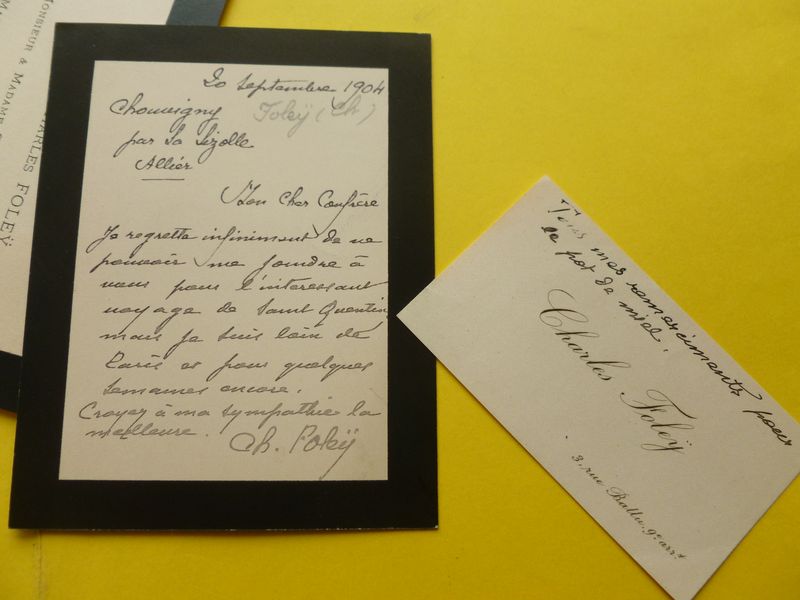 MONSIEUR & MADAME CHARLES FOLEŸ
20 Septembre 1904
Foleÿ (Ch)
Chouvigny
par La Lizolle
Allier
Mon Cher Confrère
Je regrette infiniment de ne
pouvoir me joindre à
vous pour l'intéressant
voyage de Saint Quentin
mais je suis loin de
Paris et pour quelques
semaines encore.
Croyez à ma sympathie la
meilleure.
Ch. Foleÿ
Tous mes remerciments pour
le pot de miel.
Charles Foleÿ
3, rue Ballu. 9e arrt